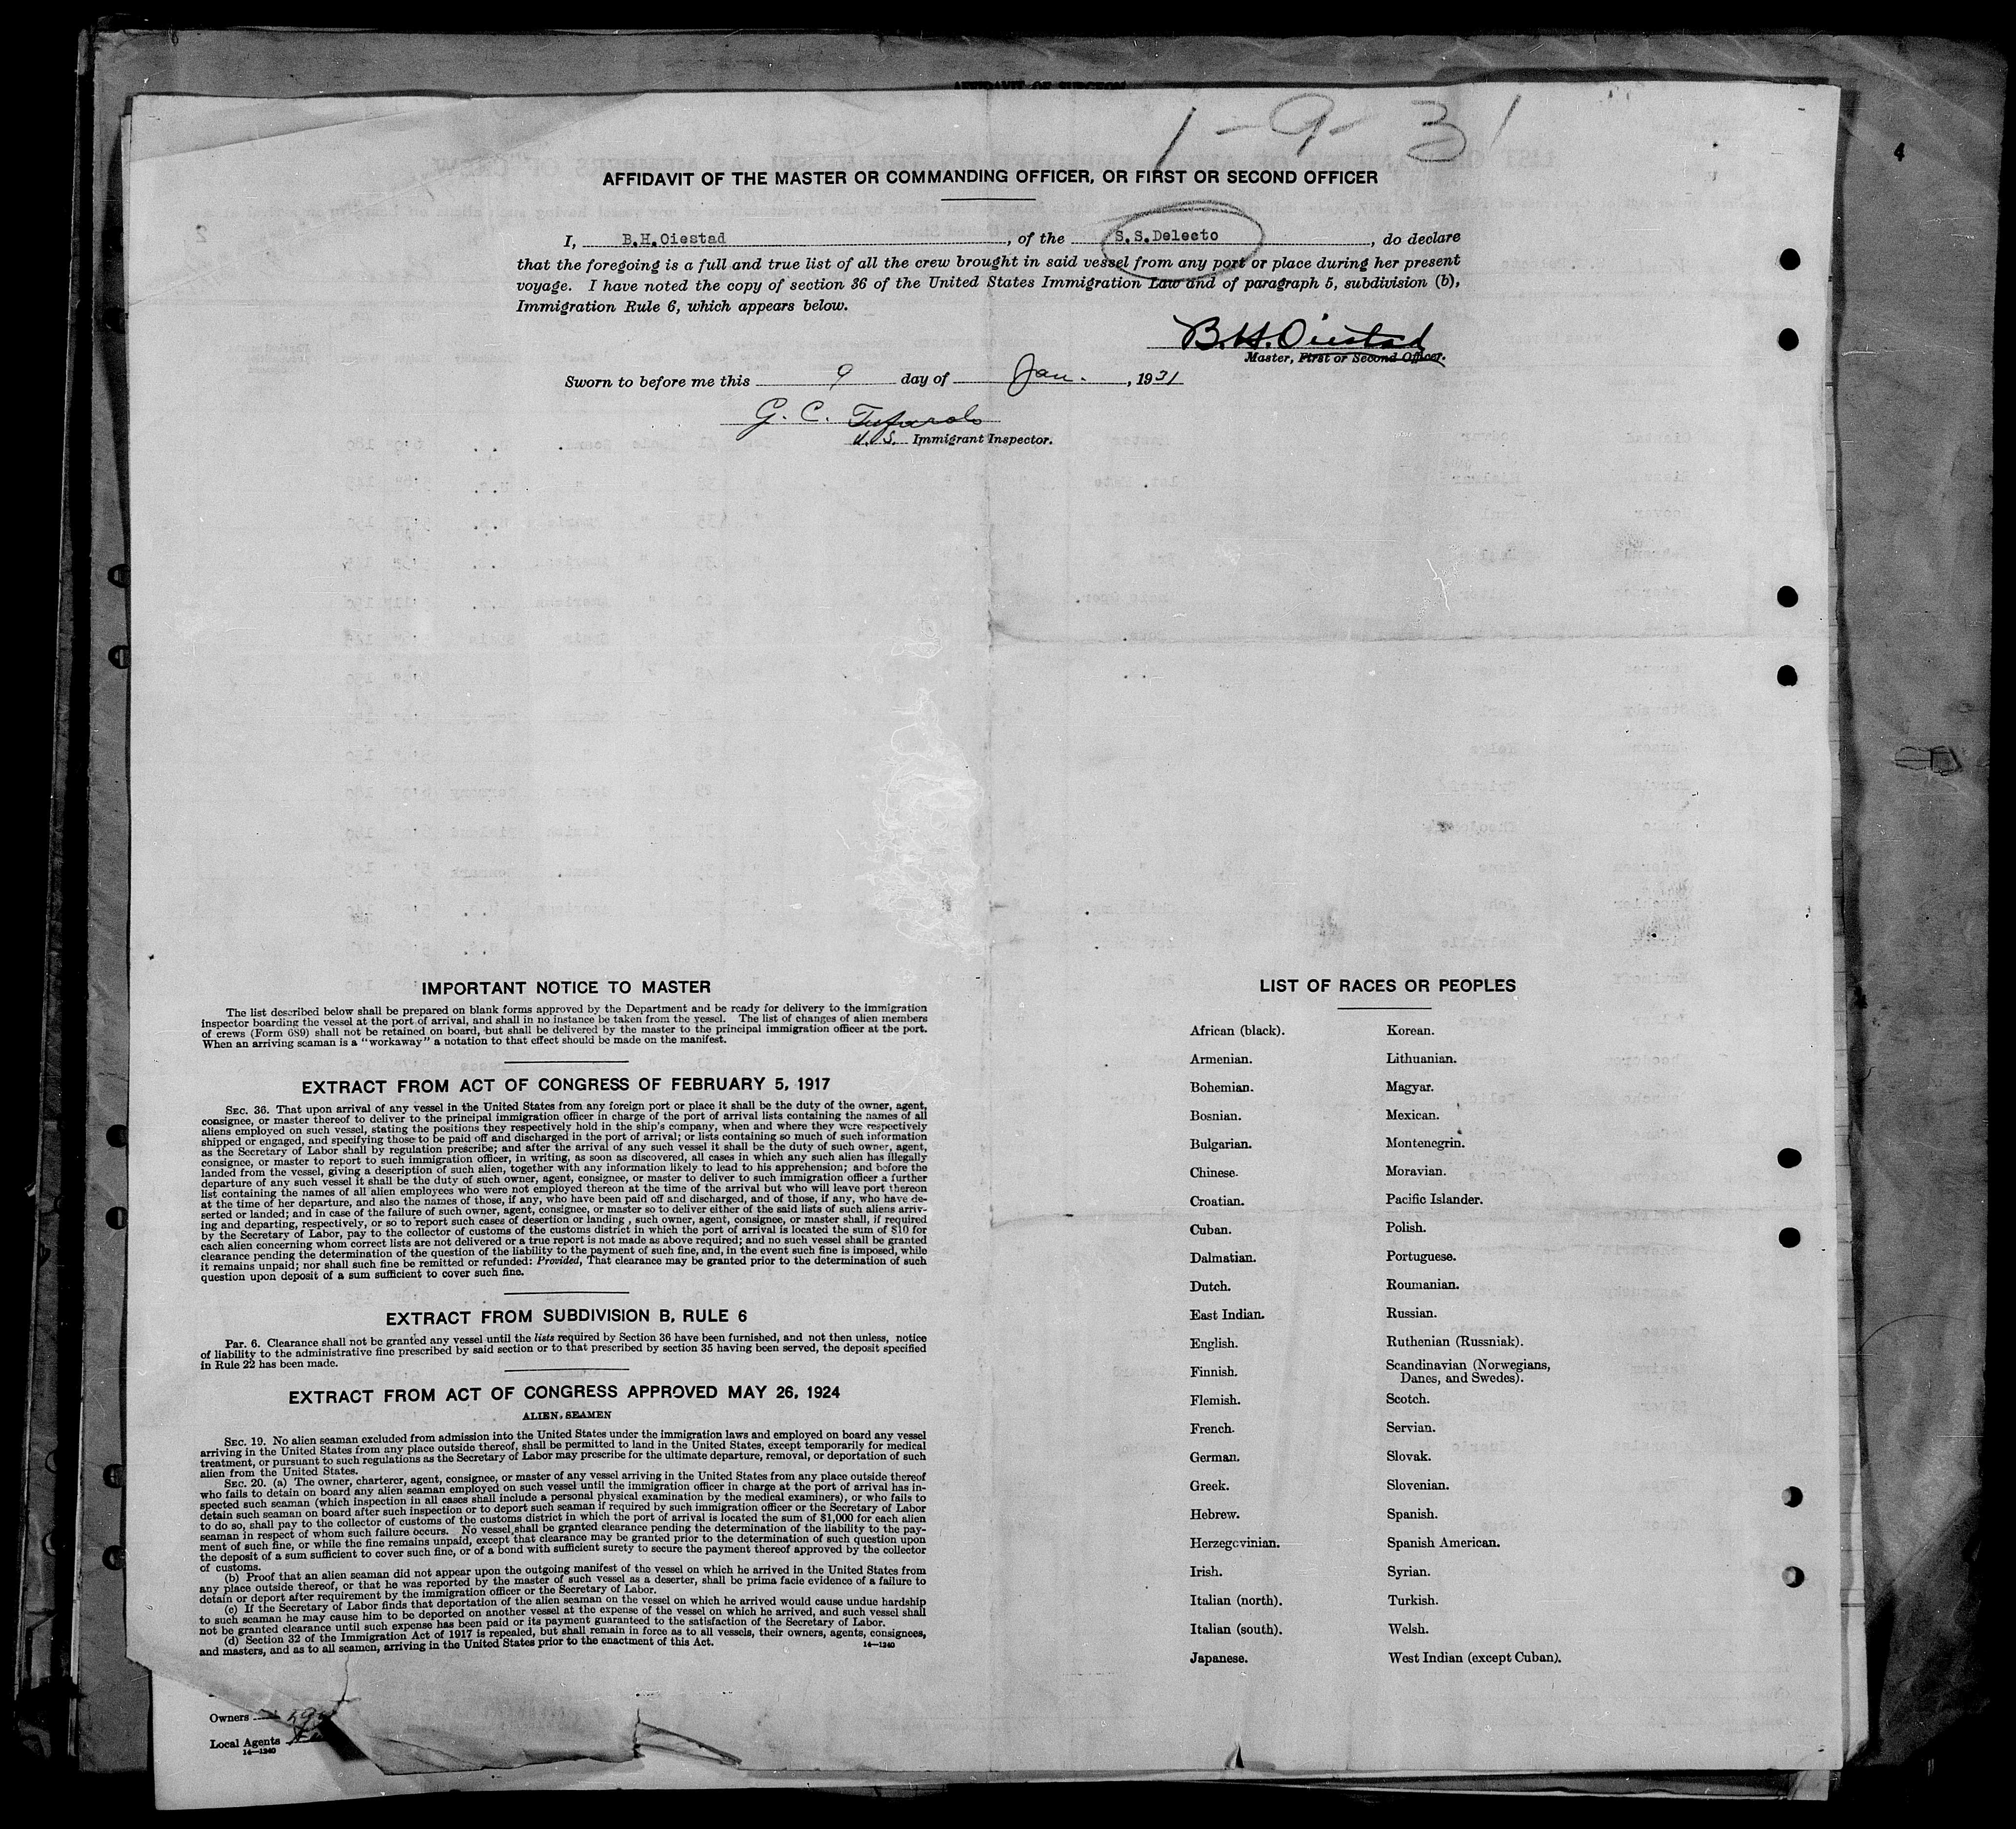 AFFIDAVIT OF SURGEON
1-9-31
4
AFFIDAVIT OF THE MASTER OR COMMANDING OFFICER, OR FIRST OR SECOND OFFICER
I, B.H.Oiestad, of the S.S.Delecto, do declare
that the foregoing is a full and true list of all the crew brought in said vessel from any port or place during her present
voyage. I have noted the copy of section 36 of the United States Immigration Law and of paragraph 5, subdivision (b),
Immigration Rule 6, which appears below.
B.H.Oiestad
Master, First or Second Officer.
Sworn to before me this 9 day of Jan., 1931
G. C.
U.S. Immigrant Inspector.
IMPORTANT NOTICE TO MASTER
The list described below shall be prepared on blank forms approved by the Department and be ready for delivery to the immigration
inspector boarding the vessel at the port of arrival, and shall in no instance be taken from the vessel. The list of changes of alien members
of crews (Form 689) shall not be retained on board, but shall be delivered by the master to the principal immigration officer at the port.
When an arriving seaman is a "workaway" a notation to that effect should be made on the manifest.
EXTRACT FROM ACT OF CONGRESS OF FEBRUARY 5, 1917
SEC. 36. That upon arrival of any vessel in the United States from any foreign port or place it shall be the duty of the owner, agent,
consignee, or master thereof to deliver to the principal immigration officer in charge of the port of arrival lists containing the names of all
aliens employed on such vessel, stating the positions they respectively hold in the ship's company, when and where they were respectively
shipped or engaged, and specifying those to be paid off and discharged in the port of arrival; or lists containing so much of such information
as the Secretary of Labor shall by regulation prescribe; and after the arrival of any such vessel it shall be the duty of such owner, agent,
consignee, or master to report to such immigration officer, in writing, as soon as discovered, all cases in which any such alien has illegally
landed from the vessel, giving a description of such alien, together with any information likely to lead to his apprehension; and before the
departure of any such vessel it shall be the duty of such owner, agent, consignee, or master to deliver to such immigration officer a further
list containing the names of all alien employees who were not employed thereon at the time of the arrival but who will leave port thereon
at the time of her departure, and also the names of those, if any, who have been paid off and discharged, and of those, if any, who have de-
serted or landed; and in case of the failure of such owner, agent, consignee, or master so to deliver either of the said lists of such aliens arriv-
ing and departing, respectively, or so to report such cases of desertion or landing, such owner, agent, consignee, or master shall, if required
by the Secretary of Labor, pay to the collector of customs of the customs district in which the port of arrival is located the sum of $10 for
each alien concerning whom correct lists are not delivered or a true report is not made as above required; and no such vessel shall be granted
clearance pending the determination of the question of the liability to the payment of such fine, and, in the event such fine is imposed, while
it remains unpaid; nor shall such fine be remitted or refunded: Provided, That clearance may be granted prior to the determination of such
question upon deposit of a sum sufficient to cover such fine.
EXTRACT FROM SUBDIVISION B, RULE 6
Par. 6. Clearance shall not be granted any vessel until the lists required by Section 36 have been furnished, and not then unless, notice
of liability to the administrative fine prescribed by said section or to that prescribed by section 35 having been served, the deposit specified
in Rule 22 has been made.
EXTRACT FROM ACT OF CONGRESS APPROVED MAY 26, 1924
ALIEN SEAMEN
SEC. 19. No alien seaman excluded from admission into the United States under the immigration laws and employed on board any vessel
arriving in the United States from any place outside thereof, shall be permitted to land in the United States, except temporarily for medical
treatment, or pursuant to such regulations as the Secretary of Labor may prescribe for the ultimate departure, removal, or deportation of such
alien from the United States.
SEC. 20. (a) The owner, charterer, agent, consignee, or master of any vessel arriving in the United States from any place outside thereof
who fails to detain on board any alien seaman employed on such vessel until the immigration officer in charge at the port of arrival has in-
spected such seaman (which inspection in all cases shall include a personal physical examination by the medical examiners), or who fails to
detain such seaman on board after such inspection or to deport such seaman if required by such immigration officer or the Secretary of Labor
to do so, shall pay to the collector of customs of the customs district in which the port of arrival is located the sum of $1,000 for each alien
seaman in respect of whom such failure occurs. No vessel shall be granted clearance pending the determination of the liability to the pay-
ment of such fine, or while the fine remains unpaid, except that clearance may be granted prior to the determination of such question upon
the deposit of a sum sufficient to cover such fine, or of a bond with sufficient surety to secure the payment thereof approved by the collector
of customs.
(b) Proof that an alien seaman did not appear upon the outgoing manifest of the vessel on which he arrived in the United States from
any place outside thereof, or that he was reported by the master of such vessel as a deserter, shall be prima facie evidence of a failure to
detain or deport after requirement by the immigration officer or the Secretary of Labor.
(c) If the Secretary of Labor finds that deportation of the alien seaman on the vessel on which he arrived would cause undue hardship
to such seaman he may cause him to be deported on another vessel at the expense of the vessel on which he arrived, and such vessel shall
not be granted clearance until such expense has been paid or its payment guaranteed to the satisfaction of the Secretary of Labor.
(d) Section 32 of the Immigration Act of 1917 is repealed, but shall remain in force as to all vessels, their owners, agents, consignees,
and masters, and as to all seamen, arriving in the United States prior to the enactment of this Act.
14—1240
Owners
Local Agents
14—1240
LIST OF RACES OR PEOPLES
African (black). Korean.
Armenian. Lithuanian.
Bohemian. Magyar.
Bosnian. Mexican.
Bulgarian. Montenegrin.
Chinese. Moravian.
Croatian. Pacific Islander.
Cuban. Polish.
Dalmatian. Portuguese.
Dutch. Roumanian.
East Indian. Russian.
English. Ruthenian (Russniak).
Finnish. Scandinavian (Norwegians,
Danes, and Swedes).
Flemish. Scotch.
French. Servian.
German. Slovak.
Greek. Slovenian.
Hebrew. Spanish.
Herzegovinian. Spanish American.
Irish. Syrian.
Italian (north). Turkish.
Italian (south). Welsh.
Japanese. West Indian (except Cuban).